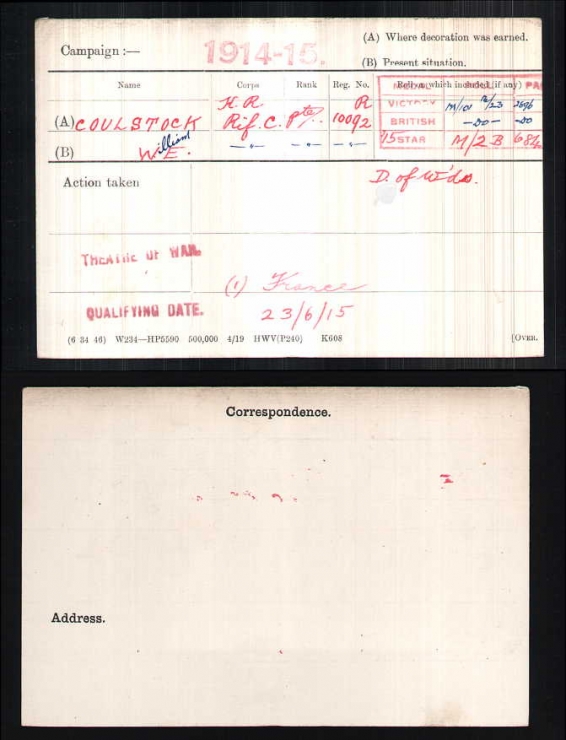 (A) Where decoration was earned.
Campaign :— 1914-15.
(B) Present situation.
Name Corps Rank Reg. No. Roll on which included (if any)
MEDAL ROLL PAGE
K.R. R
(A) COULSTOCK Rif. C. Pte 10092
VICTORY M/101 B/23 2696
BRITISH -DO- -DO
(B) William E. —"— —"— —"— 15 STAR M/2B 684
Action taken D. of W'ds.
THEATRE OF WAR.
(1) France
QUALIFYING DATE. 23/6/15
(6 34 46) W234—HP5590 500,000 4/19 HWV(P240) K608 [OVER.
Correspondence.
Address.